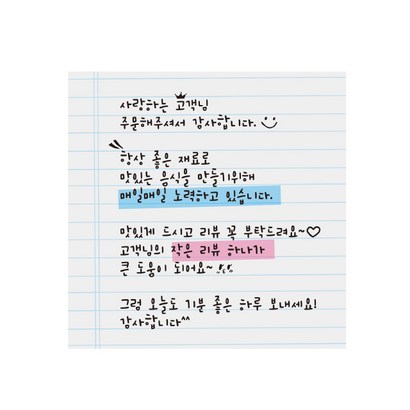 사랑하는 고객님
주문해주셔서 감사합니다.
항상 좋은 재료로
맛있는 음식을 만들기위해
매일매일 노력하고 있습니다.
맛있게 드시고 리뷰 꼭 부탁드려요~♡
고객님의 작은 리뷰 하나가
큰 도움이 되어요~
그럼 오늘도 기분 좋은 하루 보내세요!
감사합니다^^